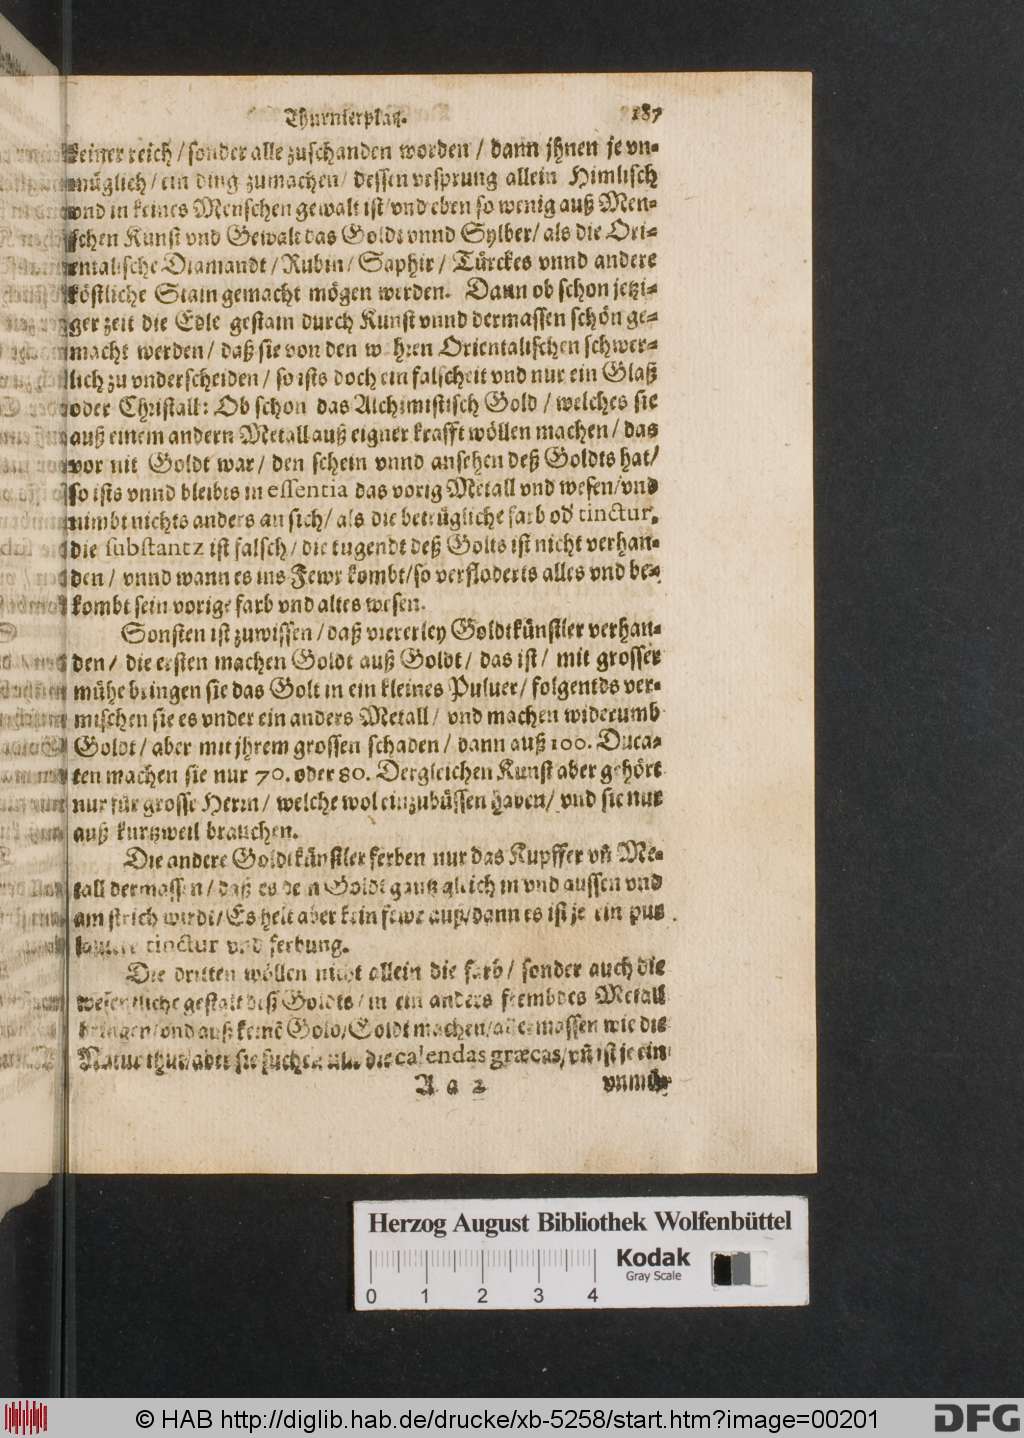 Thurnierplatz. 187
keiner reich / sonder alle zuschanden worden / dann jhnen je vn-
müglich / ein ding zumachen / dessen vrsprung allein Himlisch
vnd in keines Menschen gewalt ist / vnd eben so wenig auß Men-
schen Kunst vnd Gewalt das Goldt vnnd Sylber / als die Ori-
entalische Diamandt / Rubin / Saphir / Türckes vnnd andere
köstliche Stain gemacht mögen werden. Dann ob schon jetzi-
ger zeit die Edle gestain durch Kunst vnnd dermassen schön ge-
macht werden / daß sie von den wahren Orientalischen schwer-
lich zu vnderscheiden / so ists doch ein falscheit vnd nur ein Glaß
oder Christall: Ob schon das Alchimistisch Gold / welches sie
auß einem andern Metall auß eigner krafft wöllen machen / das
vor nit Goldt war / den schein vnnd ansehen deß Goldts hat /
so ists vnnd bleibts in essentia das vorig Metall vnd wesen / vnd
nimbt nichts anders an sich / als die betrügliche farb od' tinctur,
die substantz ist falsch / die tugendt deß Golts ist nicht verhan-
den / vnnd wann es ins Fewr kombt / so verfloderts alles vnd be-
kombt sein vorige farb vnd altes wesen.
Sonsten ist zuwissen / daß viererley Goldtkünstler verhan-
den / die ersten machen Goldt auß Goldt / das ist / mit grosser
mühe bringen sie das Golt in ein kleines Puluer / folgents ver-
mischen sie es vnder ein anders Metall / vnd machen widerumb
Goldt / aber mit jhrem grossen schaden / dann auß 100. Duca-
ten machen sie nur 70. oder 80. Dergleichen Kunst aber gehört
nur für grosse Herrn / welche wol einzubüssen haben / vnd sie nur
auß kurtzweil brauchen.
Die andere Goldtkünstler ferben nur das Kupffer vñ Me-
tall dermassen / daß es dem Goldt gantz gleich in vnd aussen vnd
am strich wirdt / Es helt aber kein fewr auß / dann es ist je ein pur
lautere tinctur vnd ferbung.
Die dritten wöllen nicht allein die farb / sonder auch die
wesentliche gestalt deß Goldts / in ein anders frembdes Metall
bringen / vnd auß keinē Gold / Goldt machen / allermassen wie die
Natur thut / aber sie suchen nur die calendas græcas, vñ ist je ein
A a 2 vnmüg-
Herzog August Bibliothek Wolfenbüttel
Kodak
Gray Scale
0 1 2 3 4
© HAB http://diglib.hab.de/drucke/xb-5258/start.htm?image=00201
DFG